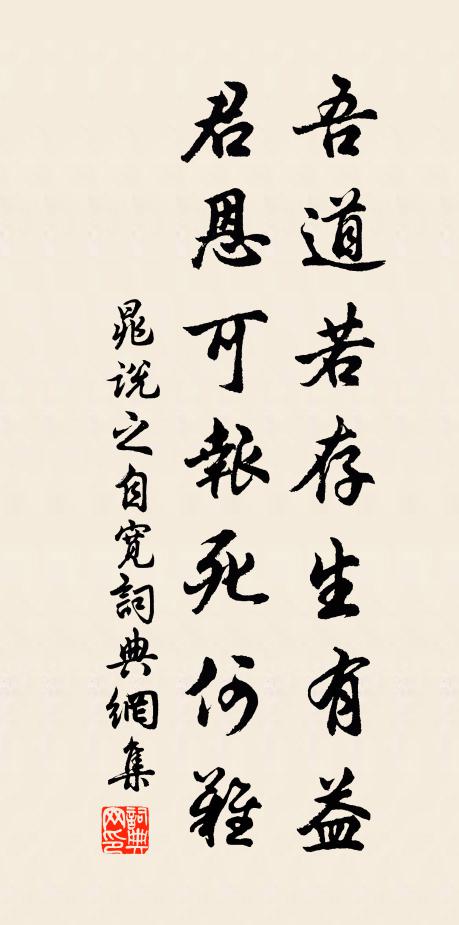 吾道若存生有益
君恩可報死何難
晁說之自寬詞典網集
詞典
网印